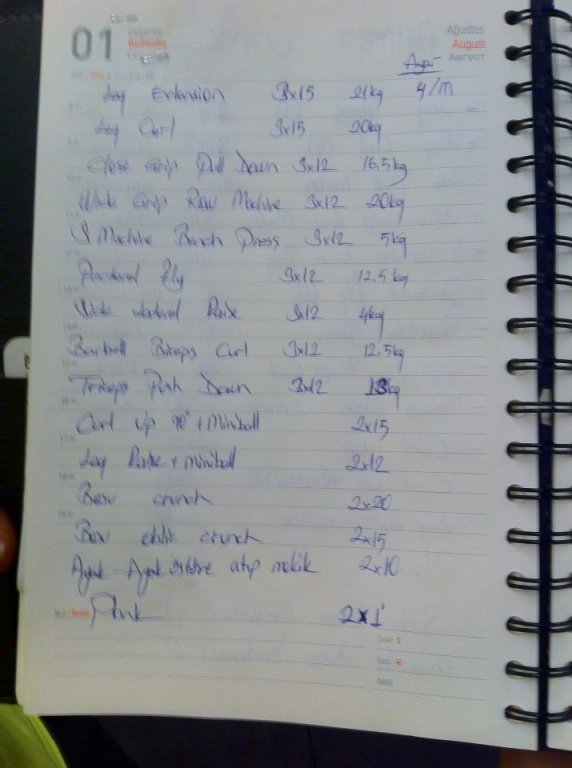 01
Ağustos
August
Август
Leg Extension 3x15 21kg 4/M
Leg Curl 3x15 20kg
Close Grip Pull Down 3x12 16,5kg
Wide Grip Row Machine 3x12 20kg
Machine Bench Press 3x12 5kg
Fly 3x12 12,5kg
Side Lateral Raise 3x12 4kg
Barbell Biceps Curl 3x12 12,5kg
Triceps Push Down 3x12 kg
Curl Up 90° + Miniball 2x15
Leg Raise + miniball 2x12
Bosu crunch 2x20
Bosu oblik crunch 2x15
Ayak - Ayak üstüne atıp mekik 2x10
Plank 2x1'